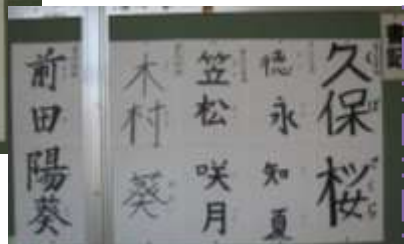 書記
久保 桜
徳永 知夏
笠松 咲月
木村 葵
前田 陽葵